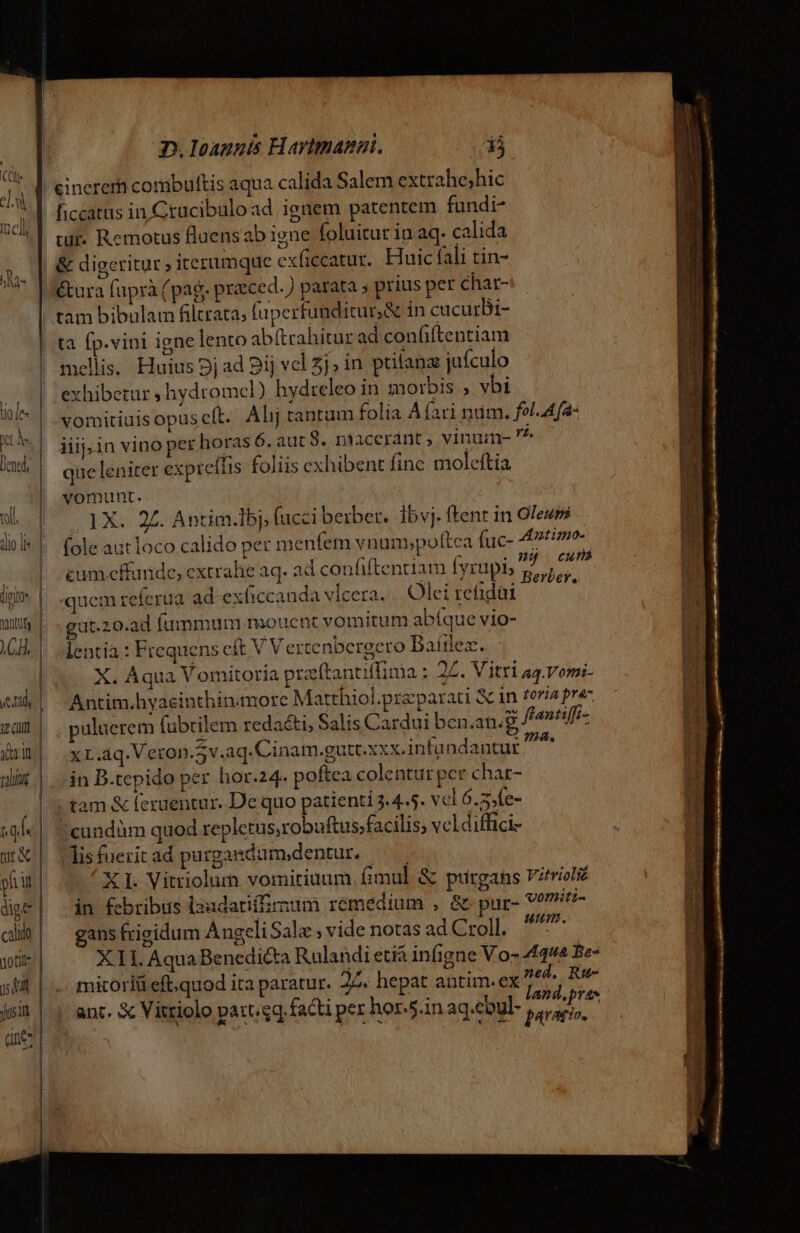 D. Ioannis Hartmanni. 13
cinerem combuſtis aqua calida Salem extrahe, hic
ſiccatus in Crucibulo ad ignem patentem fundi-
tur. Remotus fluens ab igne ſoluitur in aq. calida
& digeritur, iterumque exſiccatur. Huic ſali tin-
ctura ſuprà (pag. præced.) parata, prius per char-
tam bibulam filtrata, ſuperfunditur, & in cucurbi-
ta ſp. vini igne lento abſtrahitur ad conſiſtentiam
mellis. Huius ℈j ad ℈ij vel ʒj, in ptiſanæ juſculo
exhibetur, hydromel) hydreleo in morbis, vbi
vomitiuis opus eſt. Alij tantum folia Aſari num. fol. Aſa-
iiij. in vino per horas 6. aut 8. macerant, vinum- ri.
que leniter expreſſis foliis exhibent ſine moleſtia
vomunt.
IX. ♃. Antim. lbj, ſucci berber. lbvj. ſtent in Oleum
ſole aut loco calido per menſem vnum, poſtea ſuc- Antimo-
cum effunde, extrahe aq. ad conſiſtentiam ſyrupi, nij cum
quem reſerua ad exſiccanda vlcera. Olei reſidui Berber.
gut. 20. ad ſummum mouent vomitum abſque vio-
lentia: Frequens eſt VVertenbergero Baſilez.
X. Aqua Vomitoria præſtantiſſima: ♃. Vitri aq. Vomi-
Antim. hyacinthin. more Matthiol. præparati & in toria præ-
puluerem ſubtilem redacti, Salis Cardui ben. an. g ſtantiſſi-
xl. aq. Veron. ℥v. aq. Cinam. gutt. xxx. infundantur ma.
in B. tepido per hor. 24. poſtea colentur per char-
tam & ſeruentur. De quo patienti 3. 4. 5. vel 6. ʒ, ſe-
cundùm quod repletus, robuſtus, facilis, vel diffici-
lis fuerit ad purgandum, dentur.
XI. Vitriolum vomitiuum ſimul & purgans Vitriolū
in febribus laudatiſſimum remedium, & pur- vomiti-
gans frigidum Angeli Salæ, vide notas ad Croll. uum.
XII. Aqua Benedicta Rulandi etiā inſigne Vo- Aqua Be-
mitoriū eſt, quod ita paratur. ♃. hepat antim. ex ned. Ru-
ant. & Vitriolo part. eq. facti per hor. 5. in aq. ebul- land. præ-
paratio.